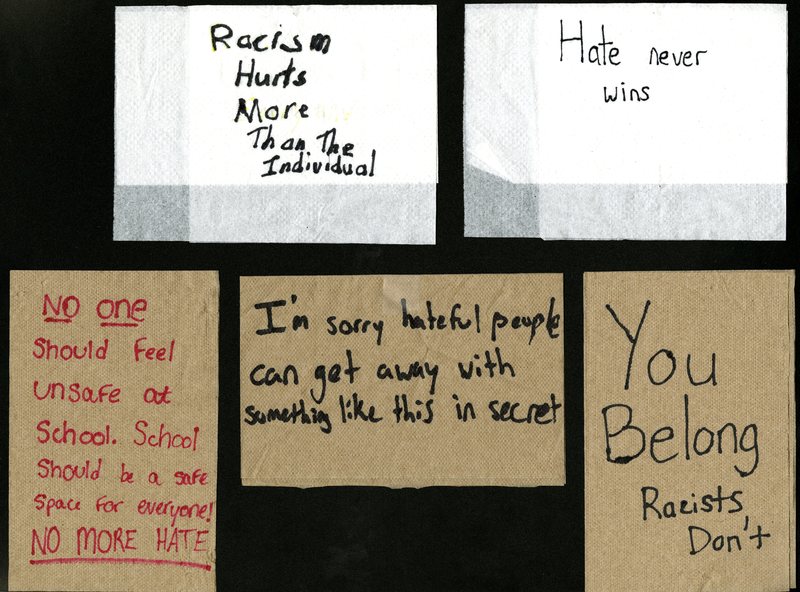 Racism
Hurts
More
Than The
Individual
Hate never
wins
NO one
Should feel
unsafe at
School. School
should be a safe
space for everyone!
NO MORE HATE
I'm sorry hateful people
can get away with
something like this in secret
You
Belong
Racists
Don't